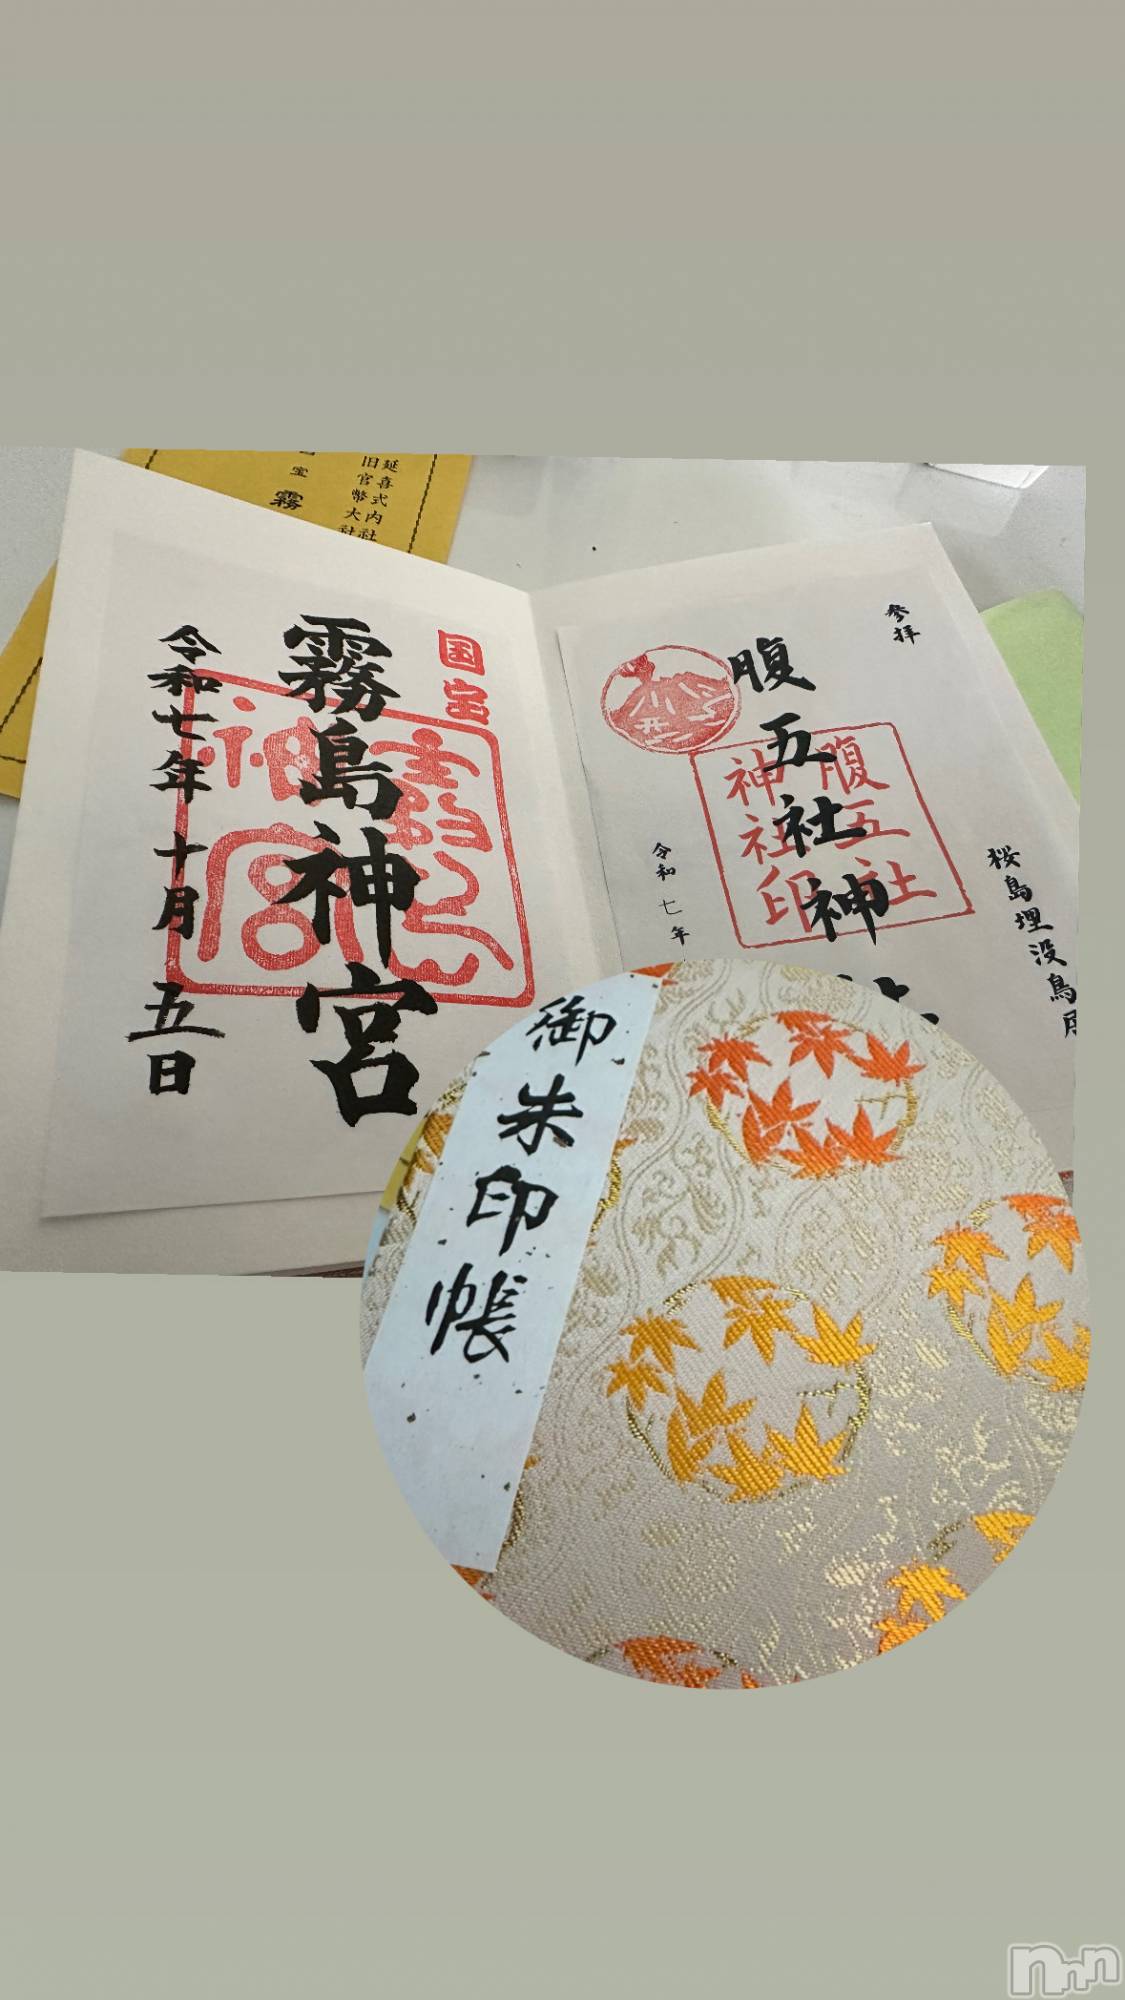 延喜式内社
旧官幣大社
宝 霧
参拝
腹五社神
腹五社
神社印
桜島埋没鳥居
令和七年
国宝
霧島神宮
令和七年十月五日
御朱印帳
nnn